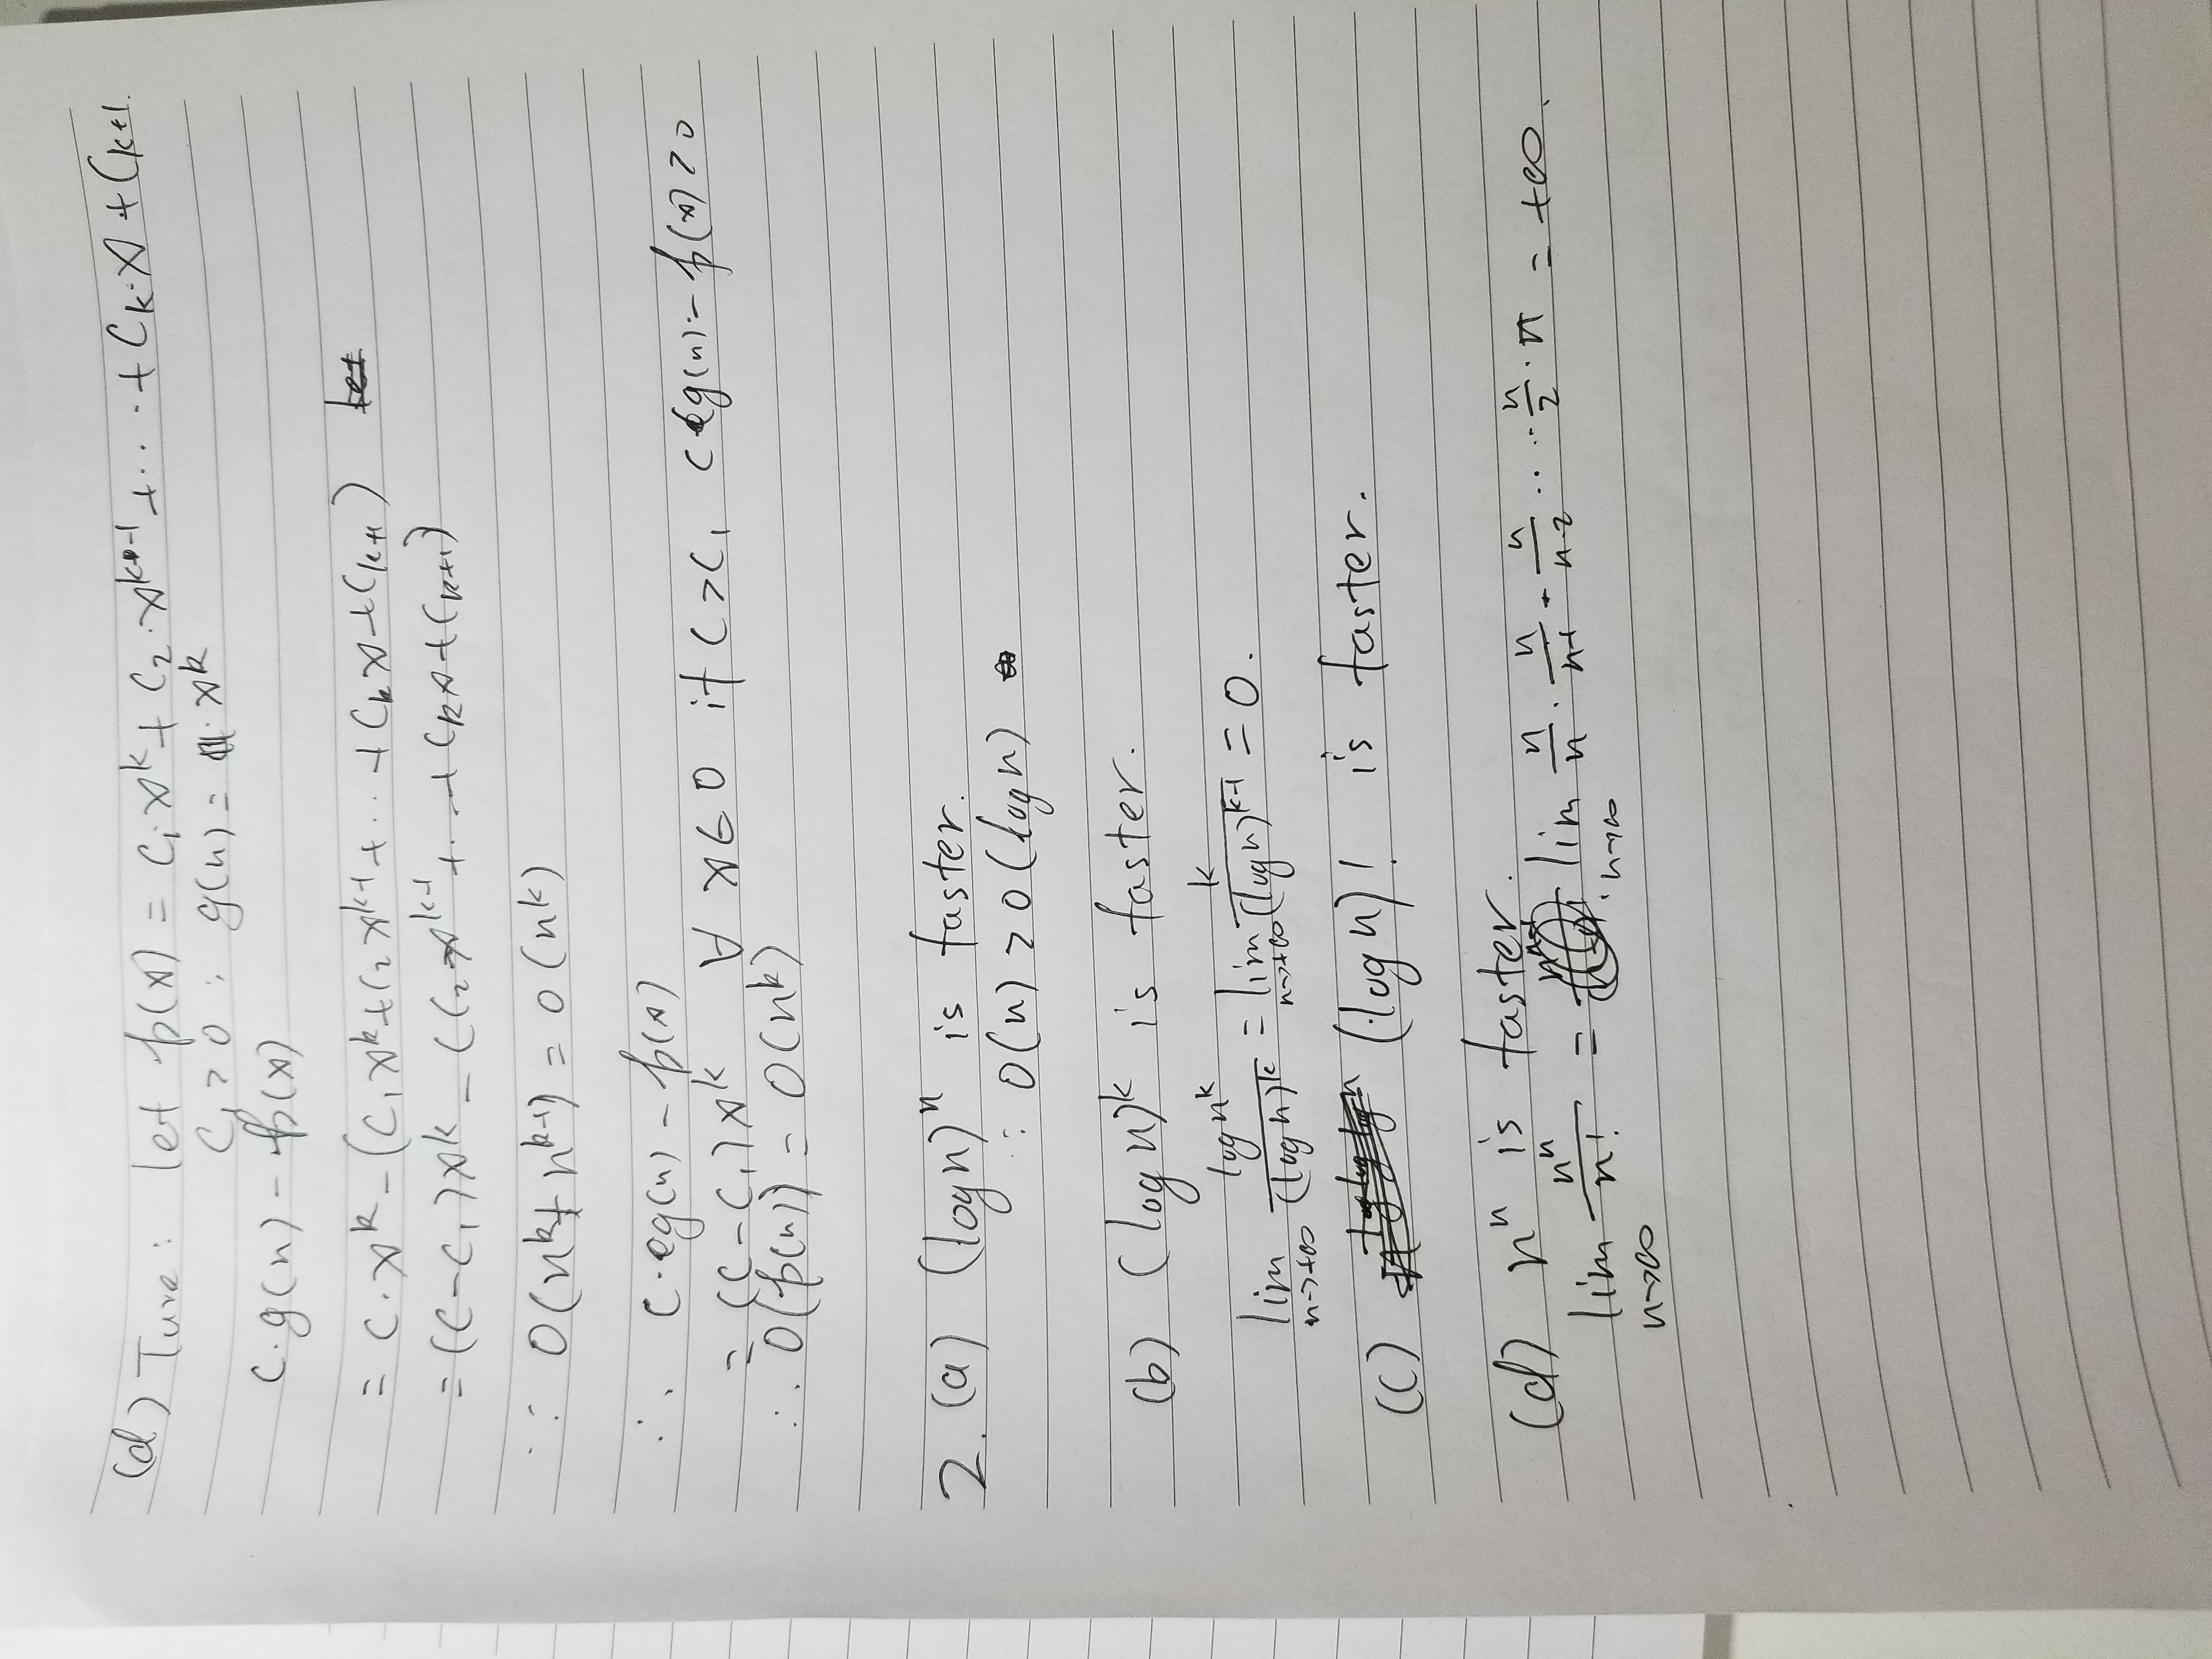 (d) Ture: let p(x) = C₁x^k + C₂·x^{k-1} + ... + C_k·x + C_{k+1}.
C₁>0 : g(n) = x^k
C·g(n) - p(x)
= C·x^k - (C₁x^k + C₂x^{k-1} + .. + C_k x + C_{k+1})
= (C-C₁)x^k - (C₂x^{k-1} + .. + C_k x + C_{k+1})
∵ O(n^k + n^{k-1}) = O(n^k)
∴ C·g(n) - p(x)
= (C-C₁)x^k ∀ x∈0 if C>C₁ C g(n) - p(x) >0
∴ O(p(n)) = O(n^k)
2. (a) (logn)^n is faster.
∵ O(n) > O(logn)
(b) (logn)^k is faster.
lim_{n→+∞} logn^k/(logn)^k = lim_{n→+∞} k/(logn)^{k-1} = 0.
(c) (logn)! is faster.
(d) n^n is faster.
lim_{n→∞} n^n/n! = lim_{n→∞} n/n · n/n-1 · n/n-2 ... n/2 · n = +∞.